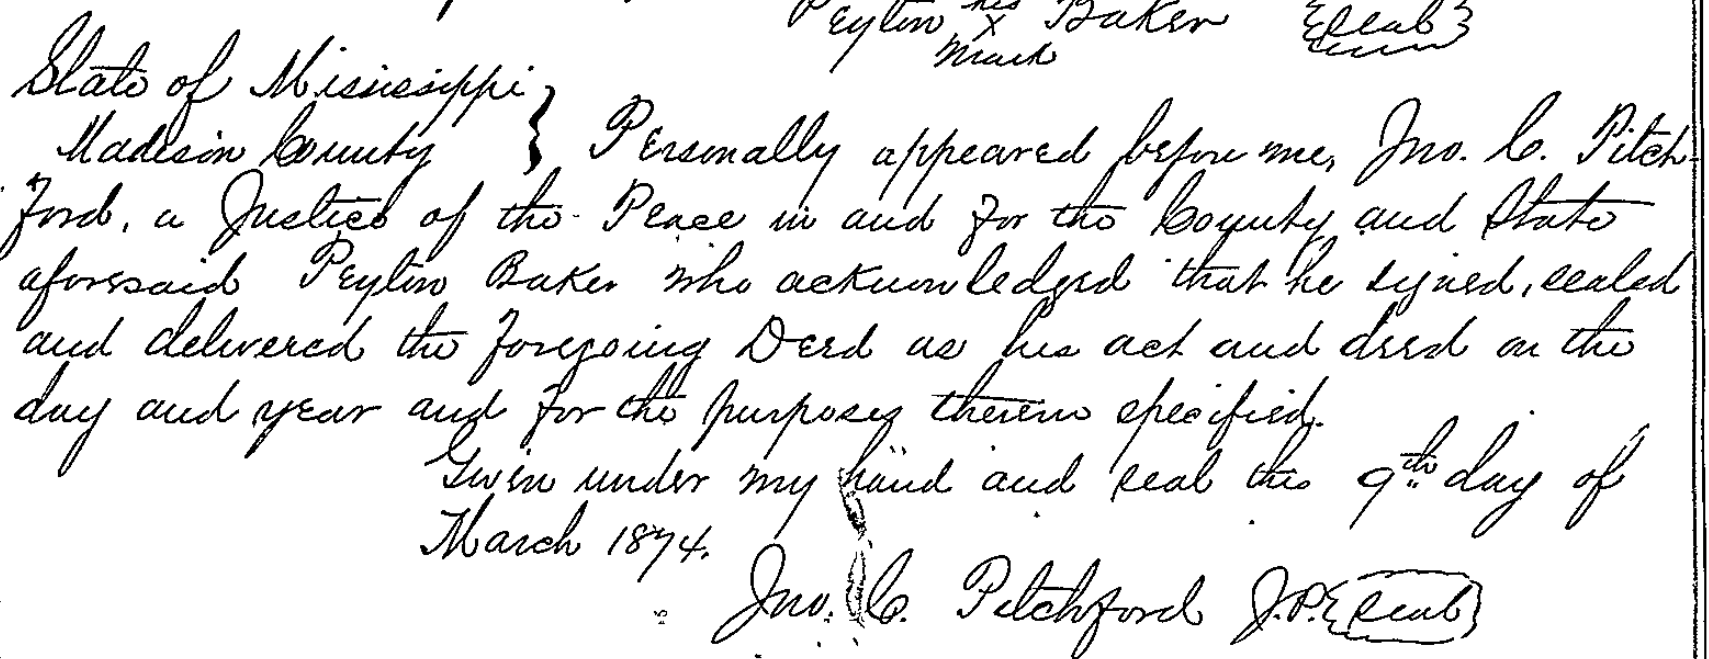 his
Peyton X Baker {seal}
mark
State of Mississippi
Madison County } Personally appeared before me, Jno. C. Pitch-
ford, a Justice of the Peace in and for the County and State
aforesaid Peyton Baker who acknowledged that he signed, sealed
and delivered the foregoing Deed as his act and deed on the
day and year and for the purposes therein specified.
Given under my hand and seal this 9th day of
March 1874.
Jno. C. Pitchford J.P. {seal}